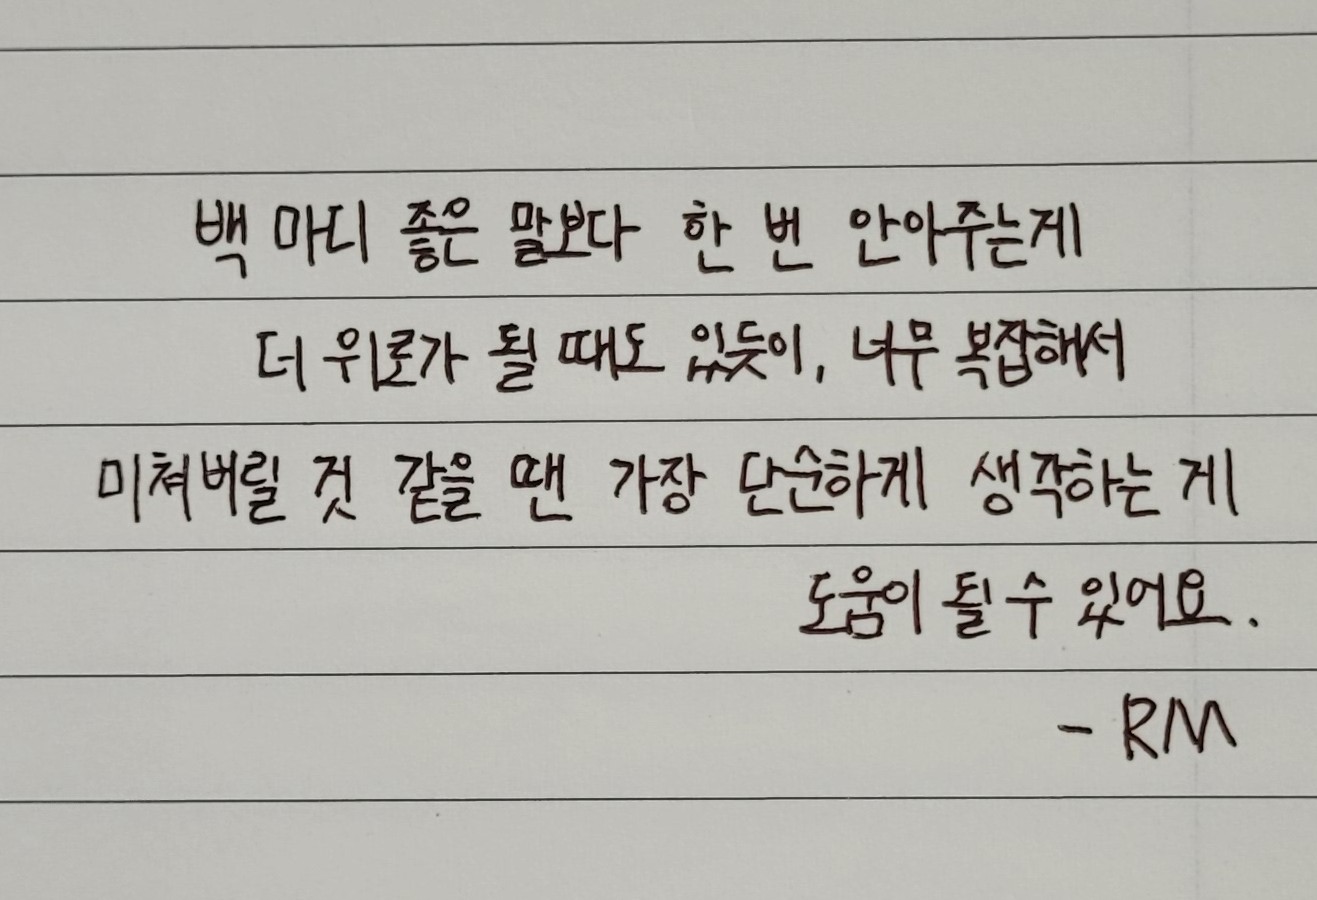 백 마디 좋은 말보다 한 번 안아주는게
더 위로가 될 때도 있듯이, 너무 복잡해서
미쳐버릴 것 같을 땐 가장 단순하게 생각하는 게
도움이 될 수 있어요.
- RM